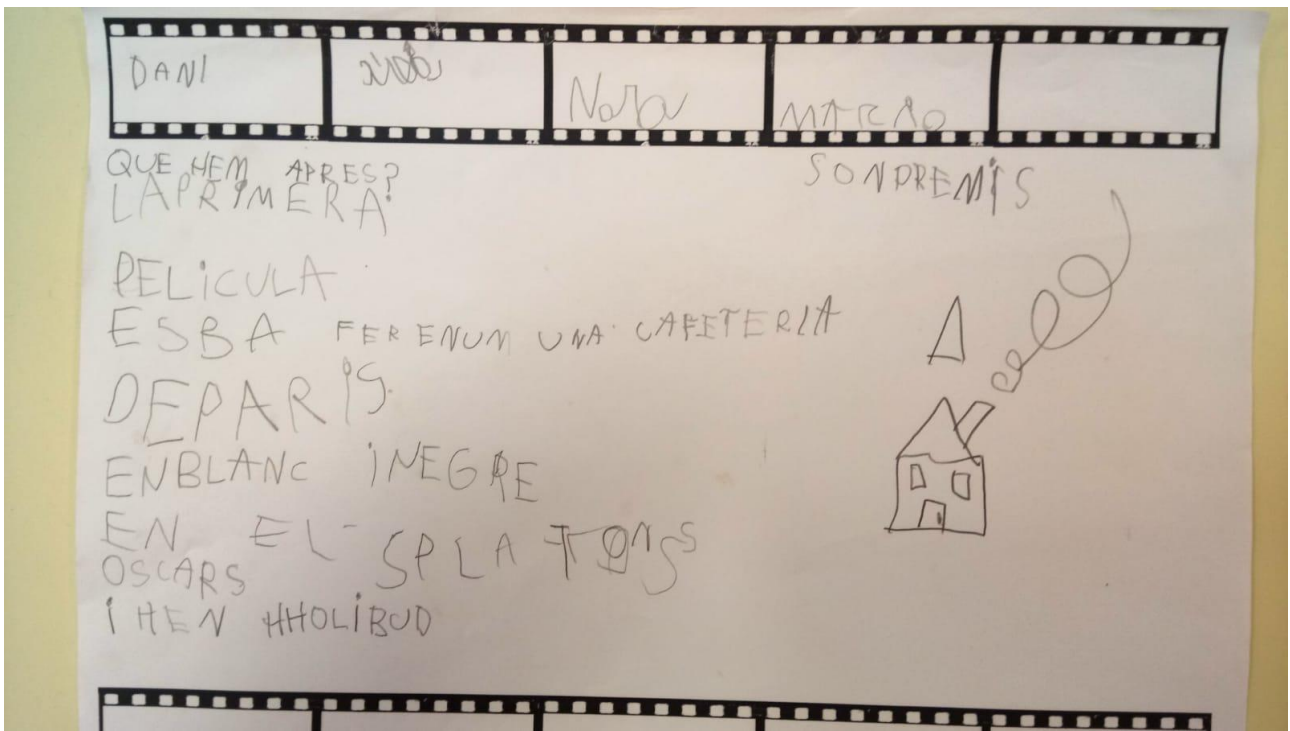 DANI
Nora
MARÇAO
QUE HEM APRES?
SON PREMIS
LAPRIMERA
PELiCULA
ESBA FER ENUM UNA CAFETERIA
DEPARIS.
ENBLANC iNEGRE
EN EL SPLATONS
OSCARS
i HEN HHOLiBUD